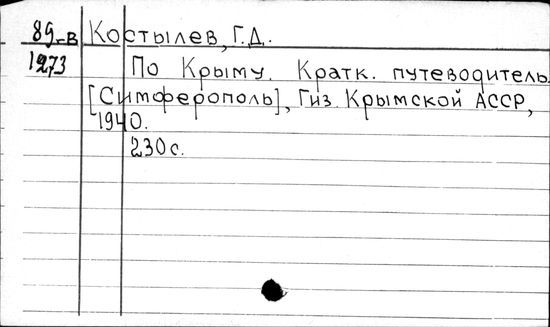 89-в Костылев, Г.Д.
1273 По Крыму. Кратк. путеводитель.
[Симферополь], Гиз. Крымской АССР,
1940.
230 с.